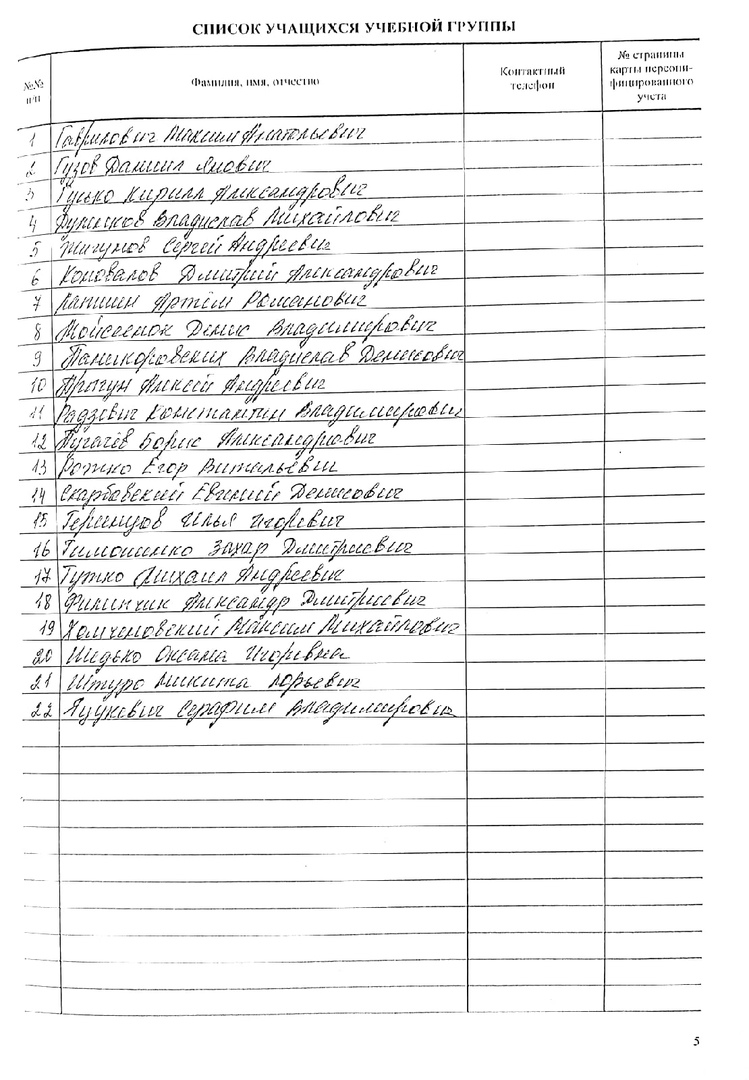 СПИСОК УЧАЩИХСЯ УЧЕБНОЙ ГРУППЫ
№№ п/п
Фамилия, имя, отчество
Контактный телефон
№ страницы карты персони-фицированного учета
1 Гаврилович Максим Анатольевич
2 Гузов Даниил Янович
3 Гуско Кирилл Александрович
4 Владислав Михайлович
5 Жигунов Сергей Андреевич
6 Коновалов Дмитрий Александрович
7 Лапшин Артём Романович
8 Мойсеенок Денис Владимирович
9 Паникоровских Владислав Денисович
10 Алексей Андреевич
11 Радзевич Константин Владимирович
12 Пугачёв Борис Александрович
13 Рожко Егор Витальевич
14 Скарбавский Евгений Денисович
15 Илья Игоревич
16 Тимошенко Захар Дмитриевич
17 Михаил Андреевич
18 Филипчик Александр Дмитриевич
19 Максим Михайлович
20 Шидько Оксана Игоревна
21 Штуро Никита Юрьевич
22 Яцукевич Серафим Владимирович
5